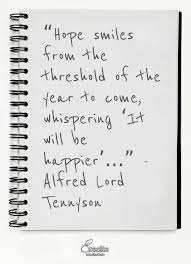 "Hope smiles
from the
threshold of the
year to come,
whispering 'It
will be
happier'..." -
Alfred Lord
Tennyson